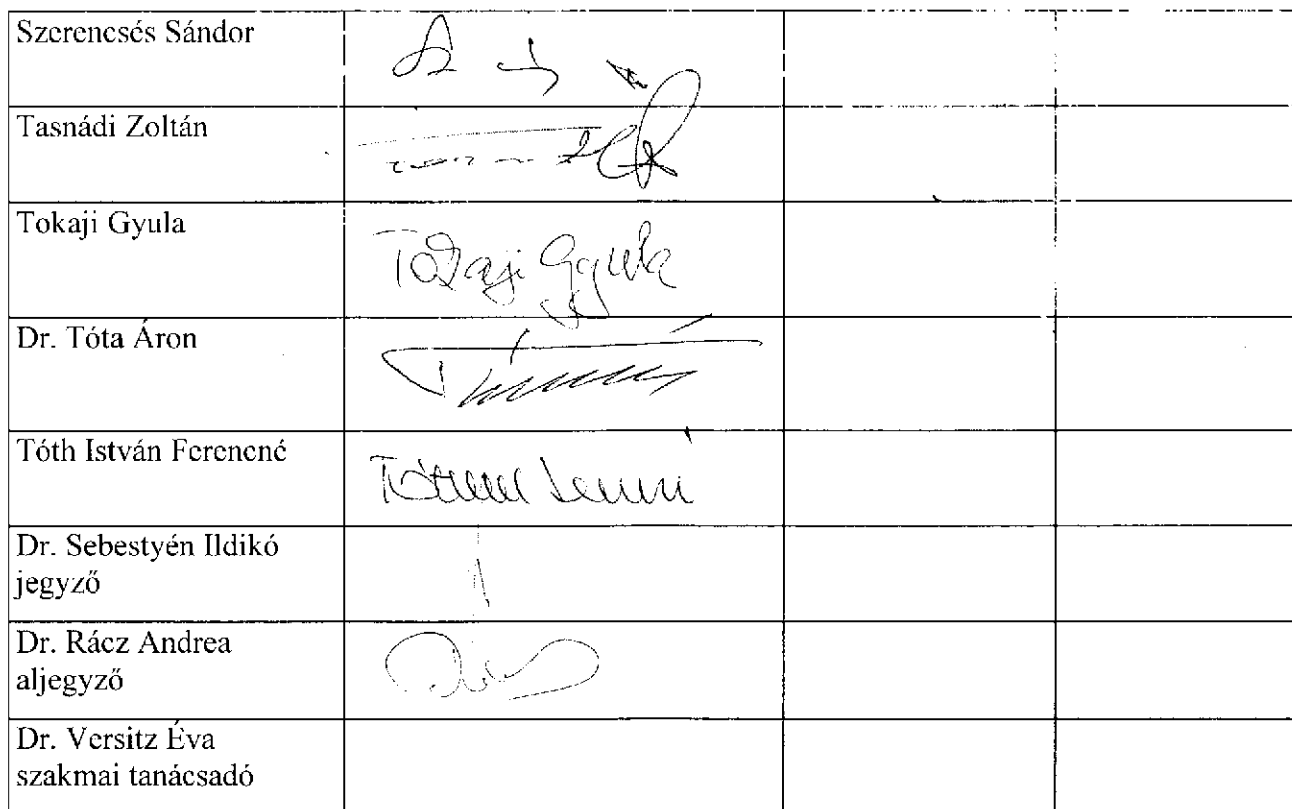 Szerencsés Sándor
Tasnádi Zoltán
Tokaji Gyula
Tokaji Gyula
Dr. Tóta Áron
Tóth István Ferencné
Dr. Sebestyén Ildikó
jegyző
Dr. Rácz Andrea
aljegyző
Dr. Versitz Éva
szakmai tanácsadó